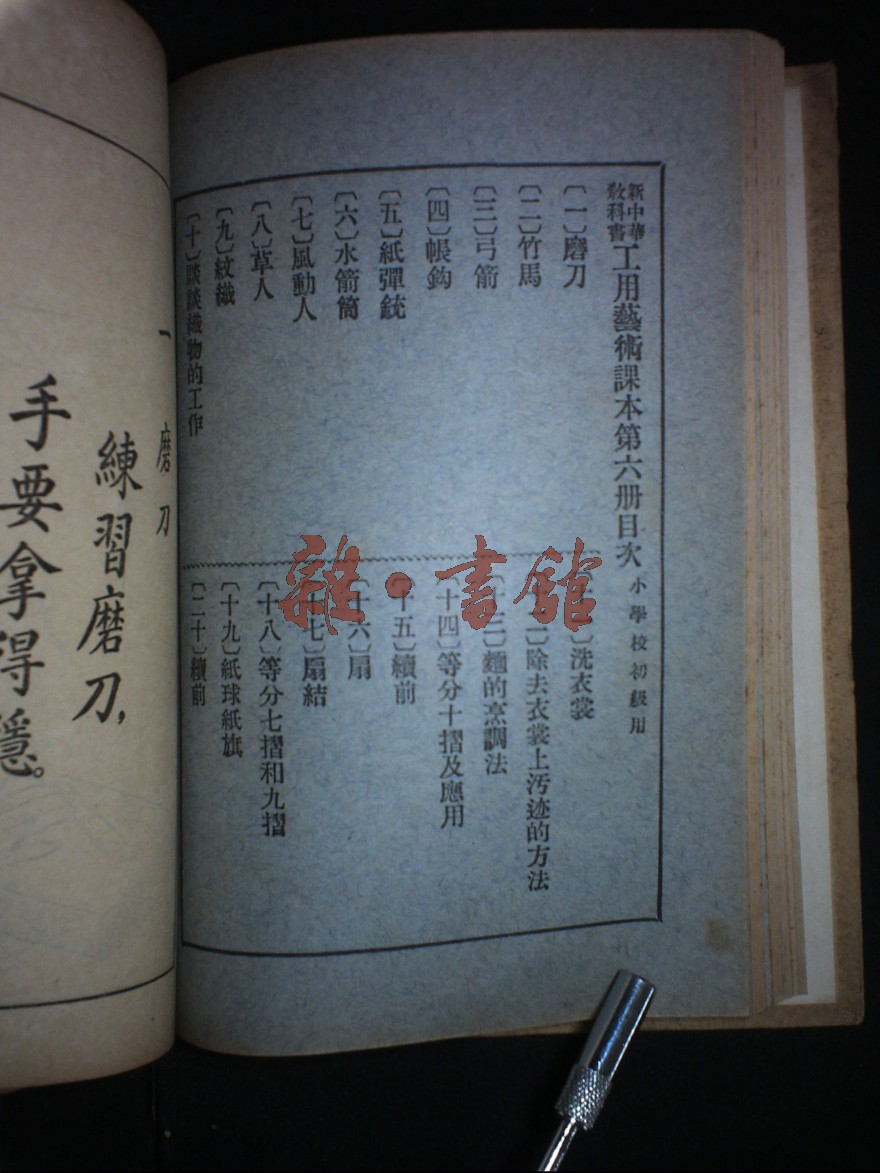 新中華
教科書
工用藝術課本第六册目次 小學校初級用
〔一〕磨刀
〔二〕竹馬
〔三〕弓箭
〔四〕帳鈎
〔五〕紙彈銃
〔六〕水箭筒
〔七〕風動人
〔八〕草人
〔九〕紋織
〔十〕談談織物的工作
洗衣裳
二〕除去衣裳上汚迹的方法
三〕麵的烹調法
〔十四〕等分十摺及應用
十五〕續前
十六〕扇
七〕扇結
〔十八〕等分七摺和九摺
〔十九〕紙球紙旗
〔二十〕續前
雜·書館
一 磨刀
練習磨刀，
手要拿得穩。